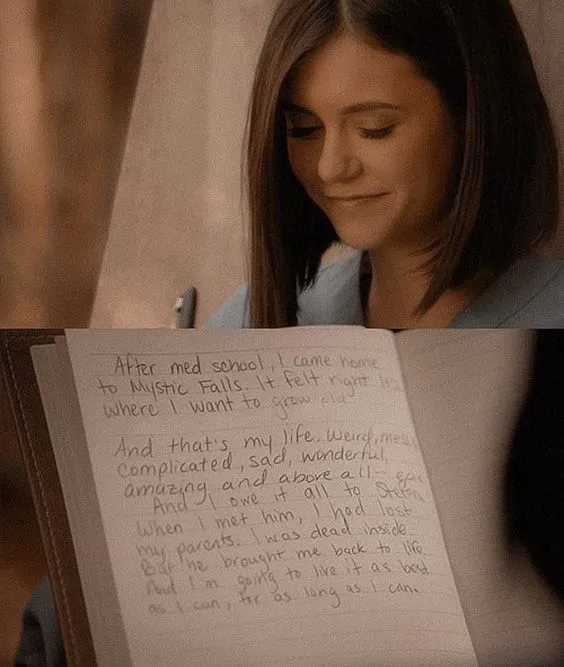 After med school, I came home
to Mystic Falls. It felt right
where I want to grow old
And that's my life. Weird,
complicated, sad, wonderful,
amazing, and above all--
And I owe it all to Stefan
When I met him, I had lost
my parents. I was dead inside
But he brought me back to life
And I'm going to live it as best
as I can, for as long as I can.